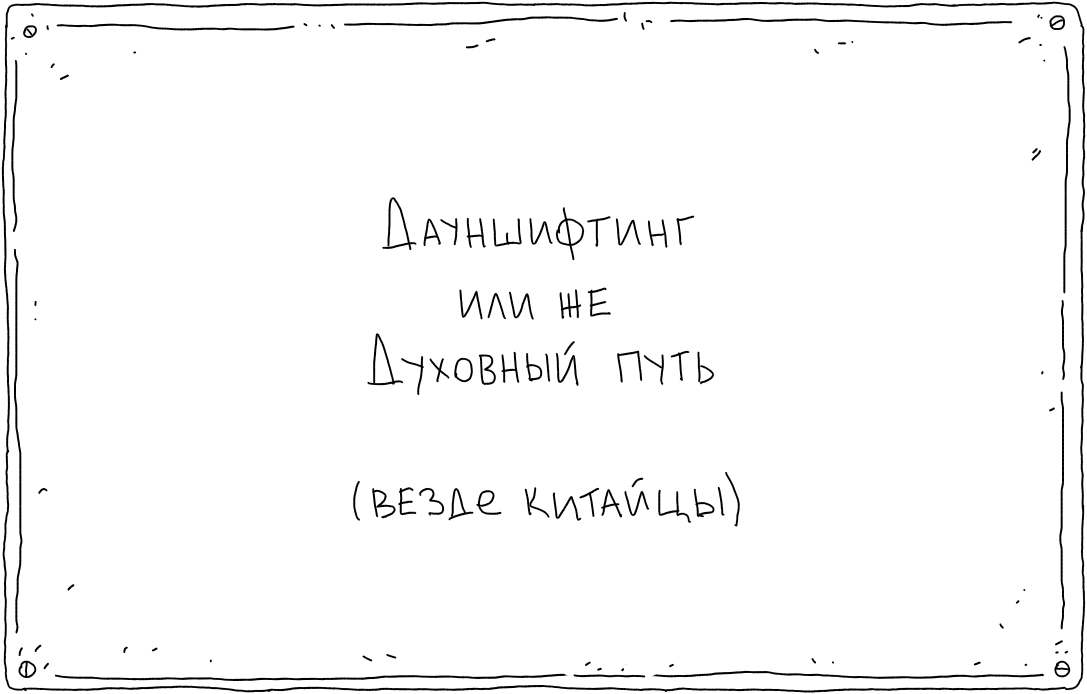 Дауншифтинг
или же
Духовный путь
(везде китайцы)